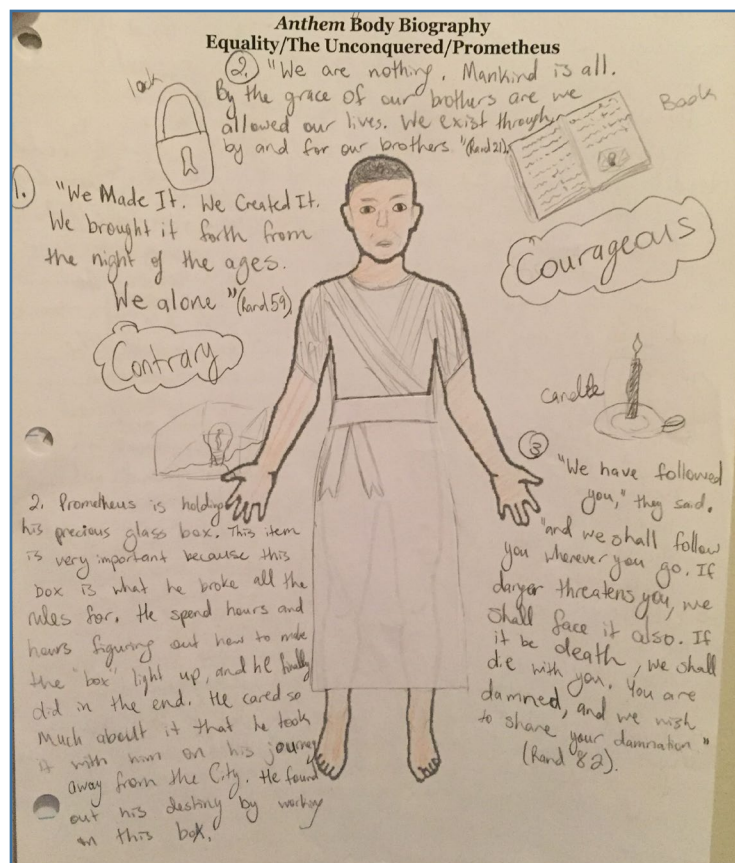 Anthem Body Biography
Equality/The Unconquered/Prometheus
lock
2. "We are nothing. Mankind is all.
By the grace of our brothers are we
allowed our lives. We exist through,
by and for our brothers "(Rand 21).
Book
1. "We Made It. We Created It.
We brought it forth from
the night of the ages.
We alone "(Rand 59)
Courageous
Contrary
candle
3
"We have followed
you," they said.
"and we shall follow
you wherever you go. If
danger threatens you, we
shall face it also. If
it be death, we shall
die with you. You are
damned, and we wish
to share your damnation"
(Rand 82).
2. Prometheus is holding
his precious glass box. This item
is very important because this
box is what he broke all the
rules for. He spend hours and
hours figuring out how to make
the "box" light up, and he finally
did in the end. He cared so
much about it that he took
it with him on his journey
away from the City. He found
out his destiny by working
on this box.